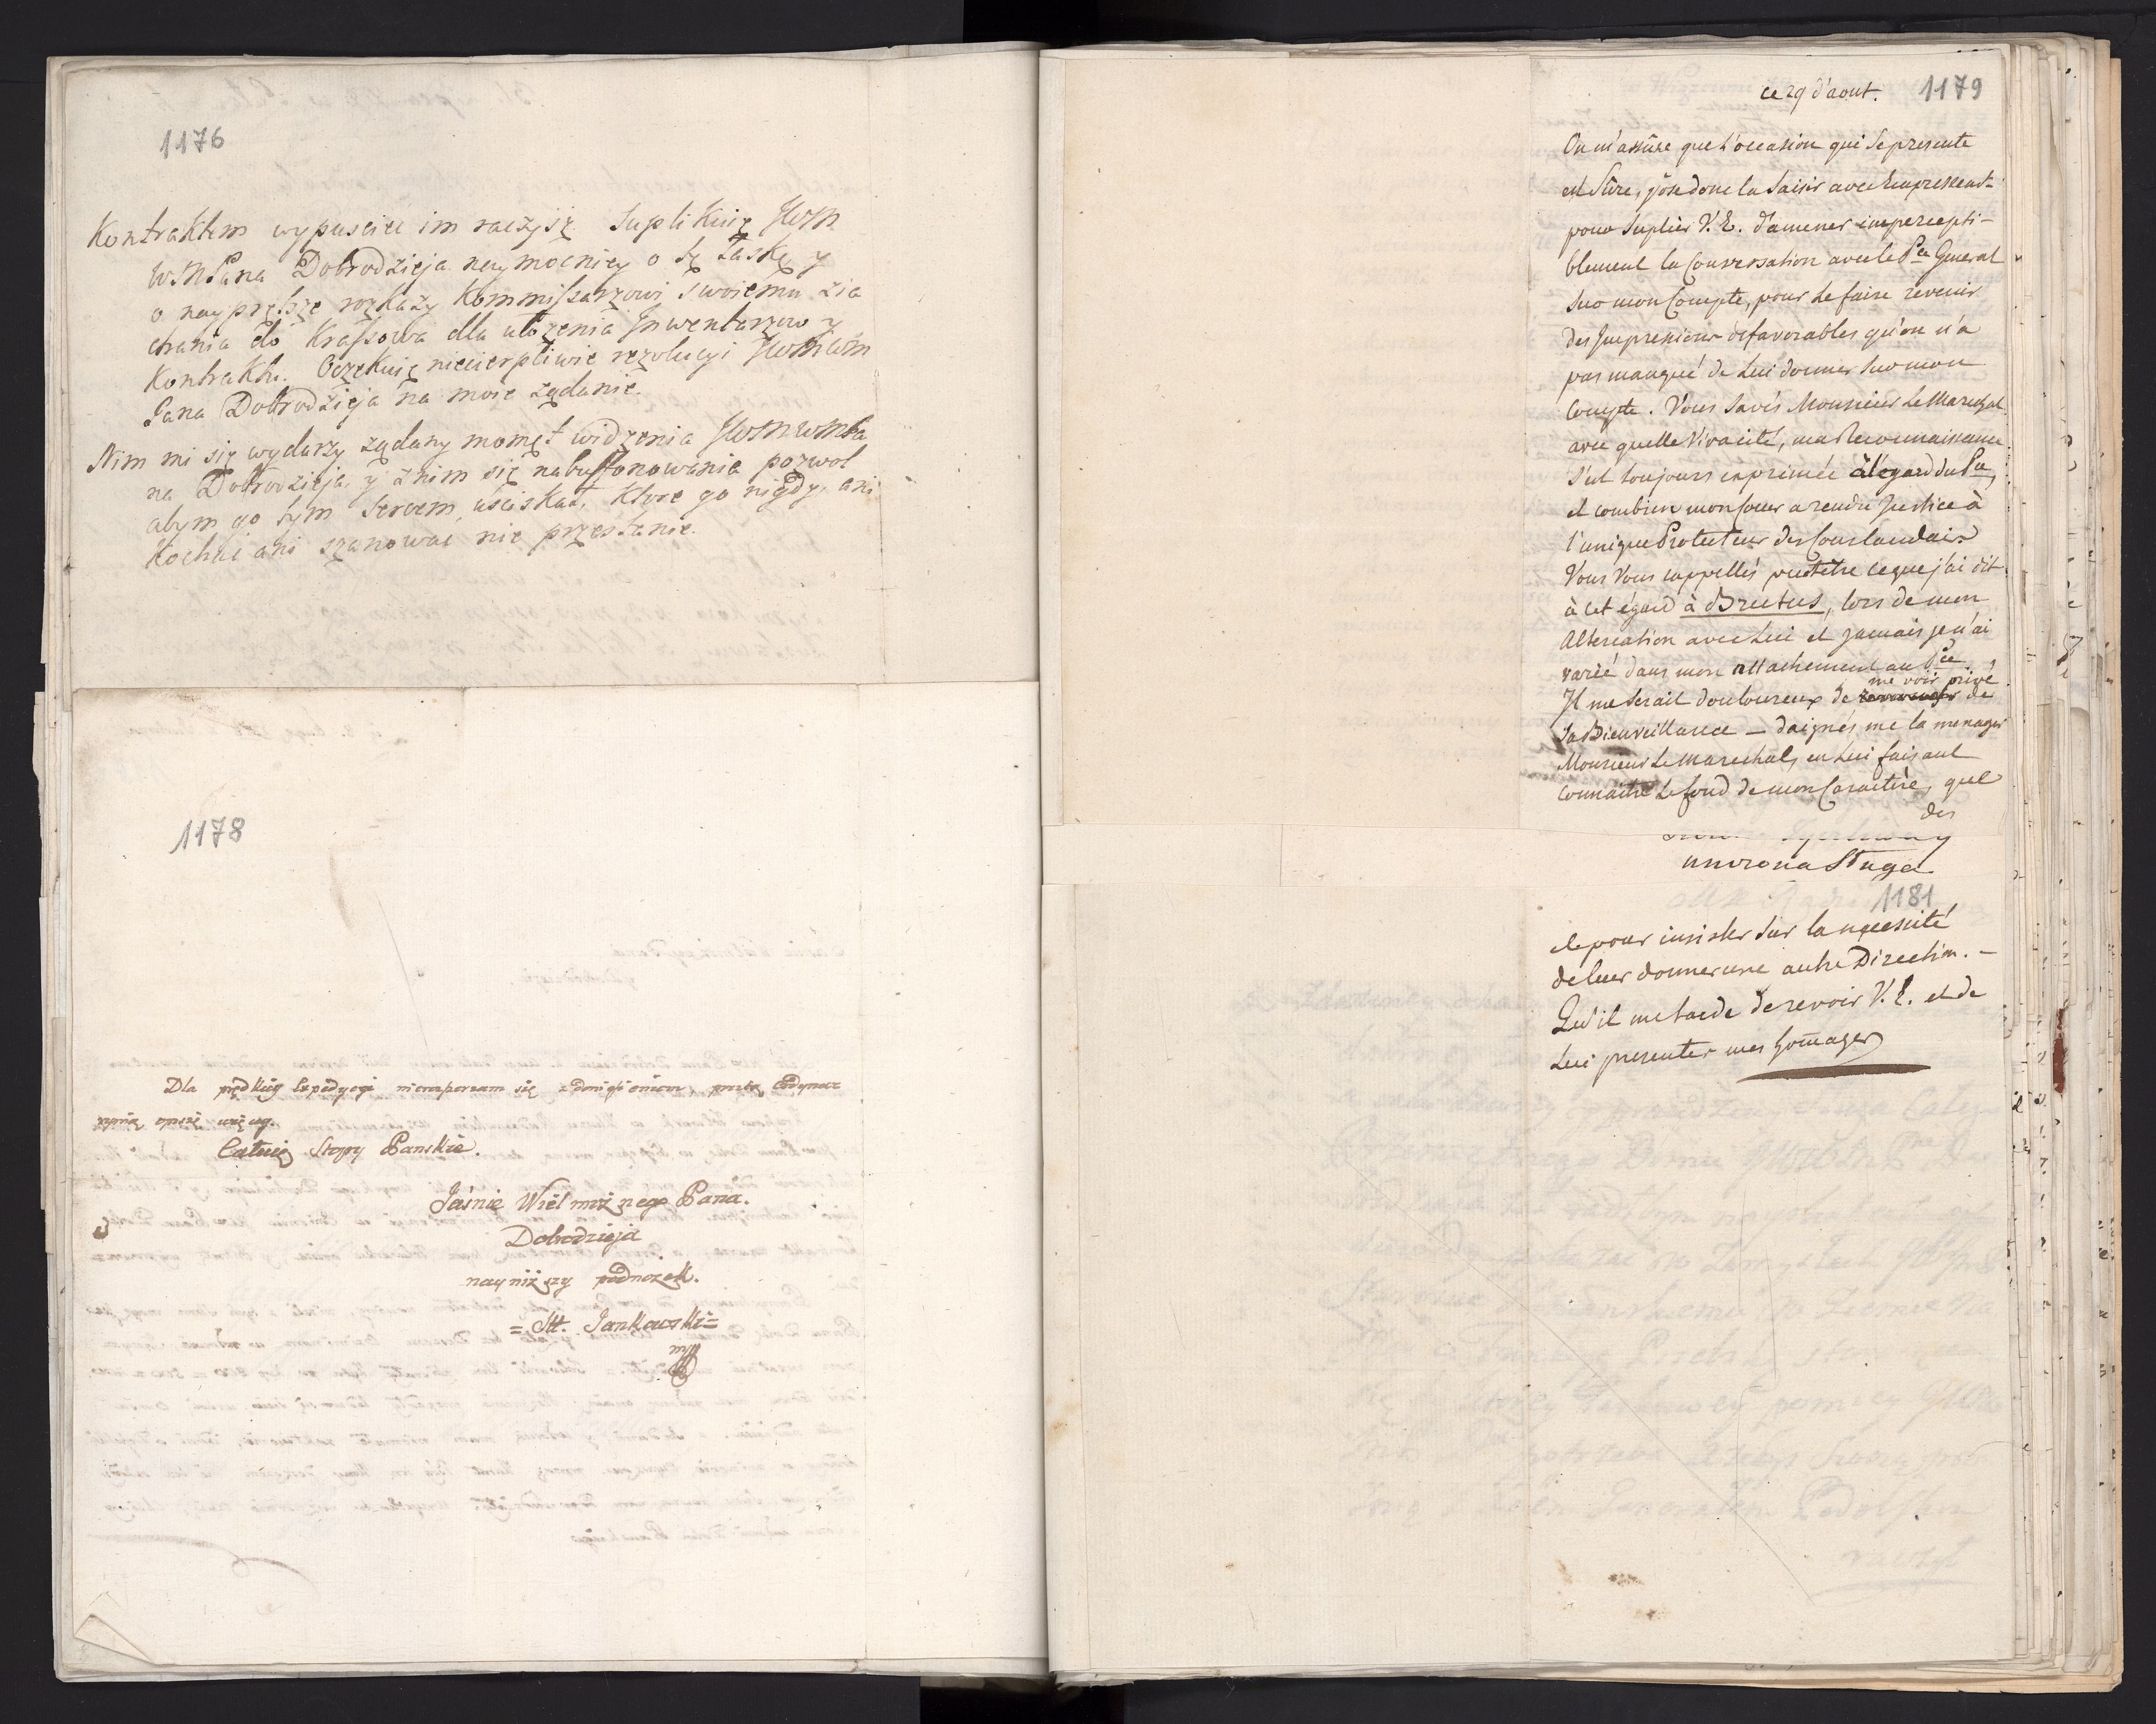 1176
Kontraktem wypuscić im raczysz. Suplikuię JWM
WMPana Dobrodzieja naymocniey o tę Łaskę, y
o nayprętsze rozkazy Kommissarzowi swoiemu zia
chania do Krassowa dla ułożenia Inwentarzow y
Kontraktu. Oczekuię niecierpliwie rezolucyi JWMWM
Pana Dobrodzieja na moie żądanie.
Nim mi się wydarzy żądany momęt widzenia JWMWMPa
na Dobrodzieja, y z nim się nabuffonowania pozwol
abym go tym sercem uściskał, ktore go nigdy, ani
kochać ani szanować nie przestanie.
1178
Dla prędkiey Expedycyi nierozporzam się z doniesieniem, przez
Całuię Stopy Panskie.
Jaśnie Wielmożnego Pana.
Dobrodzieja
nayniższy podnożek.
= Mt. Jankowski =
mp
ce 29 d'aout. 1179
On m'assûre que l'occasion qui se presente
est Sûre, j'ose donc la Saisir avec Empressemt
pour Suplier V. E. d'amener impercepti-
blement la Conversation avec le Pce General
sur mon Compte, pour le faire revenir
des Impressions defavorables qu'on n'a
pas manqué de Lui donner sur mon
Compte. Vous savés Monsieur Le Marechal
avec quelle Vivacité, ma Reconnaissance
s'est toujours exprimée à l'egard du Pce,
et combien mon Coeur a rendu Justice à
l'unique Protecteur des Courlandais
Vous Vous rappellés peutetre ce que j'ai dit
à cet égard à Brutus, lors de mon
Altercation avec Lui et jamais je n'ai
varié dans mon attachement au Pce.
me voir privé
Il me serait douloureux de de
Sa Bienveillance — daignés me la menager
Monsieur Le Marechal, en Lui faisant
connaitre Le fond de mon Caractère, que
des
unizona Sługa
1181
et pour insister sur la necessité
de leur donner une autre Direction. —
Qu'il me tarde de revoir V. E. et de
Lui presenter mes hom̄ages